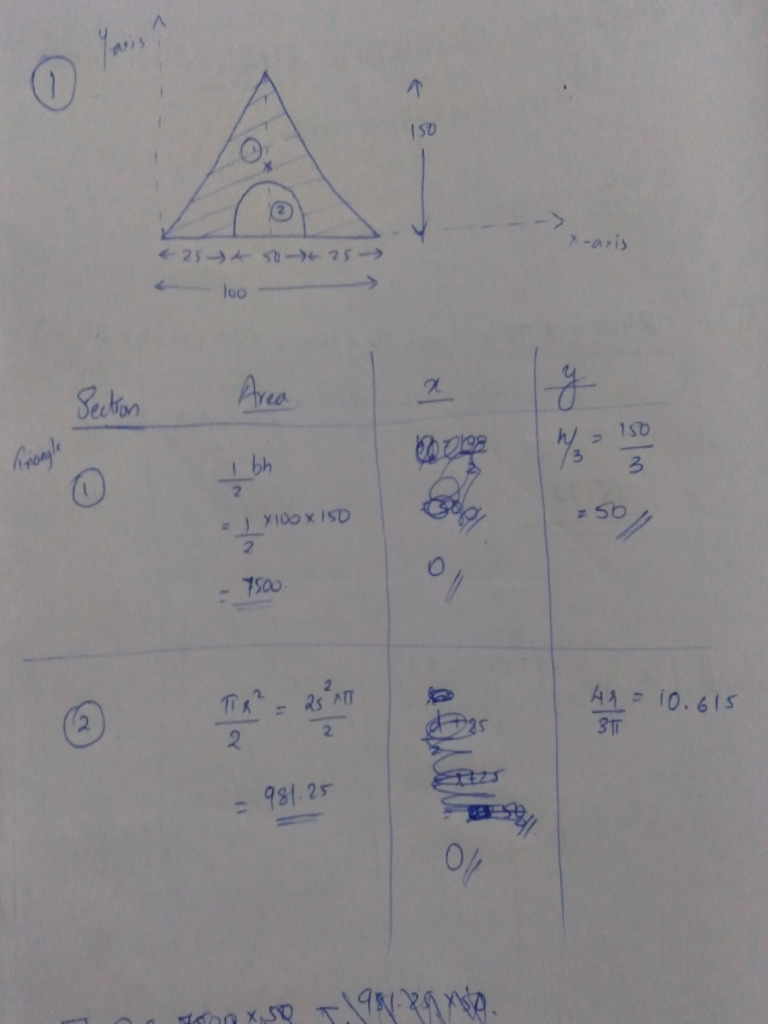 Y-axis
①
150
①
x
②
x-axis
25 50 25
100
Section Area x y
Triangle
①
1/2 bh
= 1/2 × 100 × 150
= 7500
0
h/3 = 150/3
= 50
②
πr²/2 = 25² × π/2
= 981.25
0
4r/3π = 10.615
7500 × 50
981.25 × 50